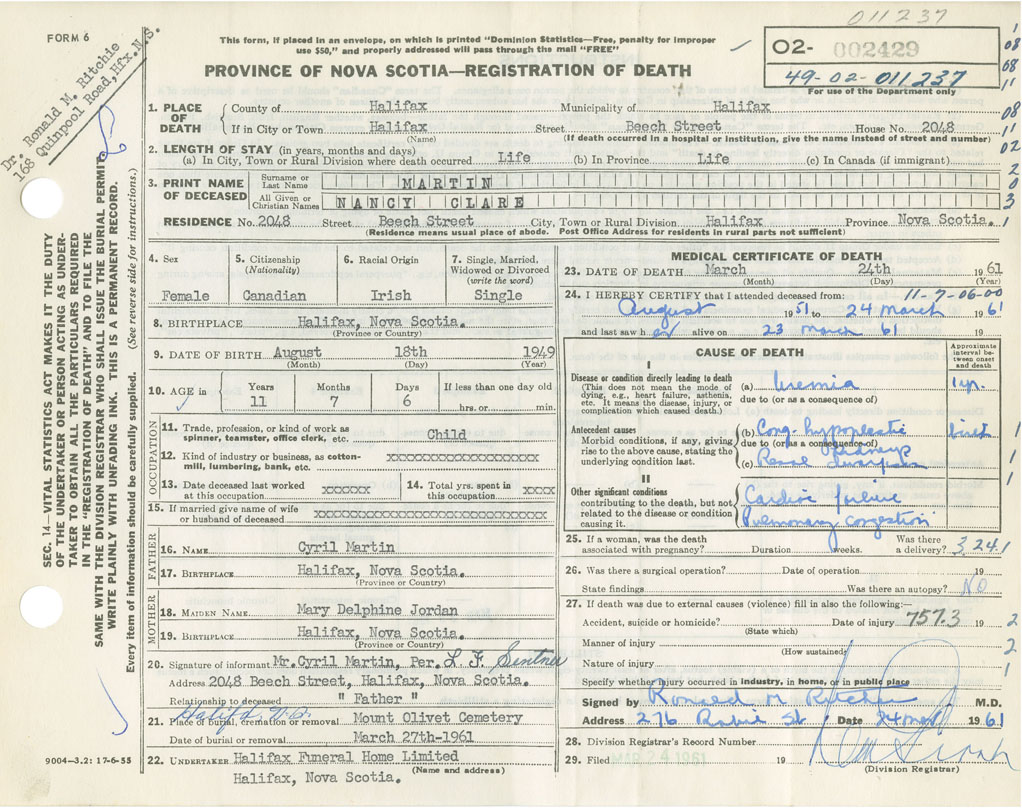 011237
FORM 6
Dr. Ronald M. Ritchie
168 Quinpool Road, Hfx. N.S.
This form, if placed in an envelope, on which is printed "Dominion Statistics—Free, penalty for improper
use $50," and properly addressed will pass through the mail "FREE"
02- 002429
49-02-011,237
For use of the Department only
PROVINCE OF NOVA SCOTIA—REGISTRATION OF DEATH
1. PLACE OF DEATH
County of Halifax Municipality of Halifax
If in City or Town Halifax Street Beech Street House No. 2048
(Name) (If death occurred in a hospital or institution, give the name instead of street and number)
2. LENGTH OF STAY (in years, months and days)
(a) In City, Town or Rural Division where death occurred Life (b) In Province Life (c) In Canada (if immigrant)
3. PRINT NAME OF DECEASED
Surname or Last Name MARTIN
All Given or Christian Names NANCY CLARE
RESIDENCE No. 2048 Street Beech Street City, Town or Rural Division Halifax Province Nova Scotia.
(Residence means usual place of abode. Post Office Address for residents in rural parts not sufficient)
4. Sex
Female
5. Citizenship
(Nationality)
Canadian
6. Racial Origin
Irish
7. Single, Married,
Widowed or Divorced
(write the word)
Single
8. BIRTHPLACE Halifax, Nova Scotia.
(Province or Country)
9. DATE OF BIRTH August 18th 1949
(Month) (Day) (Year)
10. AGE in
Years Months Days If less than one day old
11 7 6 hrs. or min.
OCCUPATION
11. Trade, profession, or kind of work as
spinner, teamster, office clerk, etc. Child
12. Kind of industry or business, as cotton-
mill, lumbering, bank, etc. xxxxxxxxxxxxxxxxxxxx
13. Date deceased last worked
at this occupation xxxxxx
14. Total yrs. spent in
this occupation xxxx
15. If married give name of wife
or husband of deceased xxxxxxxxxxxxxxxxxxxxxxxxxxx
FATHER
16. NAME Cyril Martin
17. BIRTHPLACE Halifax, Nova Scotia.
(Province or Country)
MOTHER
18. MAIDEN NAME Mary Delphine Jordan
19. BIRTHPLACE Halifax, Nova Scotia.
(Province or Country)
20. Signature of informant Mr. Cyril Martin, Per. L F
Address 2048 Beech Street, Halifax, Nova Scotia.
Relationship to deceased " Father "
Halifax, N.S.
21. Place of burial, cremation or removal Mount Olivet Cemetery
Date of burial or removal March 27th-1961
22. UNDERTAKER Halifax Funeral Home Limited
(Name and address)
Halifax, Nova Scotia.
9004-3.2: 17-6-55
SEC. 14—VITAL STATISTICS ACT MAKES IT THE DUTY
OF THE UNDERTAKER OR PERSON ACTING AS UNDER-
TAKER TO OBTAIN ALL THE PARTICULARS REQUIRED
IN THE "REGISTRATION OF DEATH" AND TO FILE THE
SAME WITH THE DIVISION REGISTRAR WHO SHALL ISSUE THE BURIAL PERMIT.
WRITE PLAINLY WITH UNFADING INK. THIS IS A PERMANENT RECORD.
Every item of information should be carefully supplied. (See reverse side for instructions.)
MEDICAL CERTIFICATE OF DEATH
23. DATE OF DEATH March 24th 1961
(Month) (Day) (Year)
24. I HEREBY CERTIFY that I attended deceased from: 11-7-06-00
August 1951 to 24 March 1961
and last saw her alive on 23 March 61 19
CAUSE OF DEATH
Approximate
interval be-
tween onset
and death
I
Disease or condition directly leading to death
(This does not mean the mode of
dying, e.g., heart failure, asthenia,
etc. It means the disease, injury, or
complication which caused death.)
(a) Uremia 1 yr.
due to (or as a consequence of)
Antecedent causes
Morbid conditions, if any, giving
rise to the above cause, stating the
underlying condition last.
(b) Cong. hypoplastic birth
due to (or as a consequence of) kidneys
(c) Renal Dwarfism
II
Other significant conditions
contributing to the death, but not
related to the disease or condition
causing it.
Cardiac failure
Pulmonary congestion
25. If a woman, was the death
associated with pregnancy? Duration weeks. Was there
a delivery? 3,24.1
26. Was there a surgical operation? Date of operation 19
State findings Was there an autopsy? NO
27. If death was due to external causes (violence) fill in also the following:—
Accident, suicide or homicide? Date of injury 757.3 19
(State which)
Manner of injury
(How sustained)
Nature of injury
Specify whether injury occurred in industry, in home, or in public place
Signed by Ronald M Ritchie M.D.
Address 276 Robie St Date 24 Mar 1961
28. Division Registrar's Record Number
29. Filed MAR 24 1961 19
(Division Registrar)
1
08
08
11
08
11
02
2
0
3
1
1
1
1
1
2
2
1